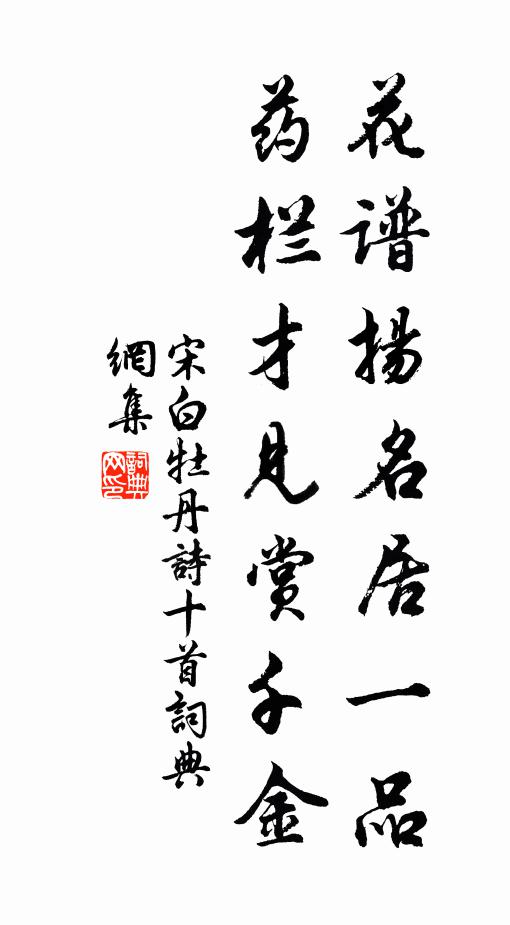 花谱揚名居一品
药栏才見赏千金
宋白牡丹詩十首詞典
網集
詞典
网印